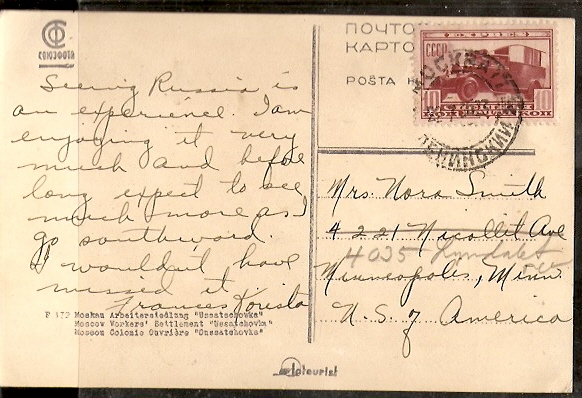 СОЮЗФОТО
Seeing Russia is
an experience. I am
enjoying it very
much and before
long expect to see
much more as I
go southward.
I wouldn't have
missed it.
Frances
F 172 Moskau Arbeitersiedlung "Ussatschowka"
Moscow Workers' Settlement "Ussaichovka"
Moscou Colonie Ouvrière "Oussatchovka"
ПОЧТО
КАРТО
POŜTA
СССР
10 10
МОСКВА
Mrs. Nora Smith
4221 Nicollet Ave
4035 Lyndale
Minneapolis, Minn
U.S. of America
Intourist